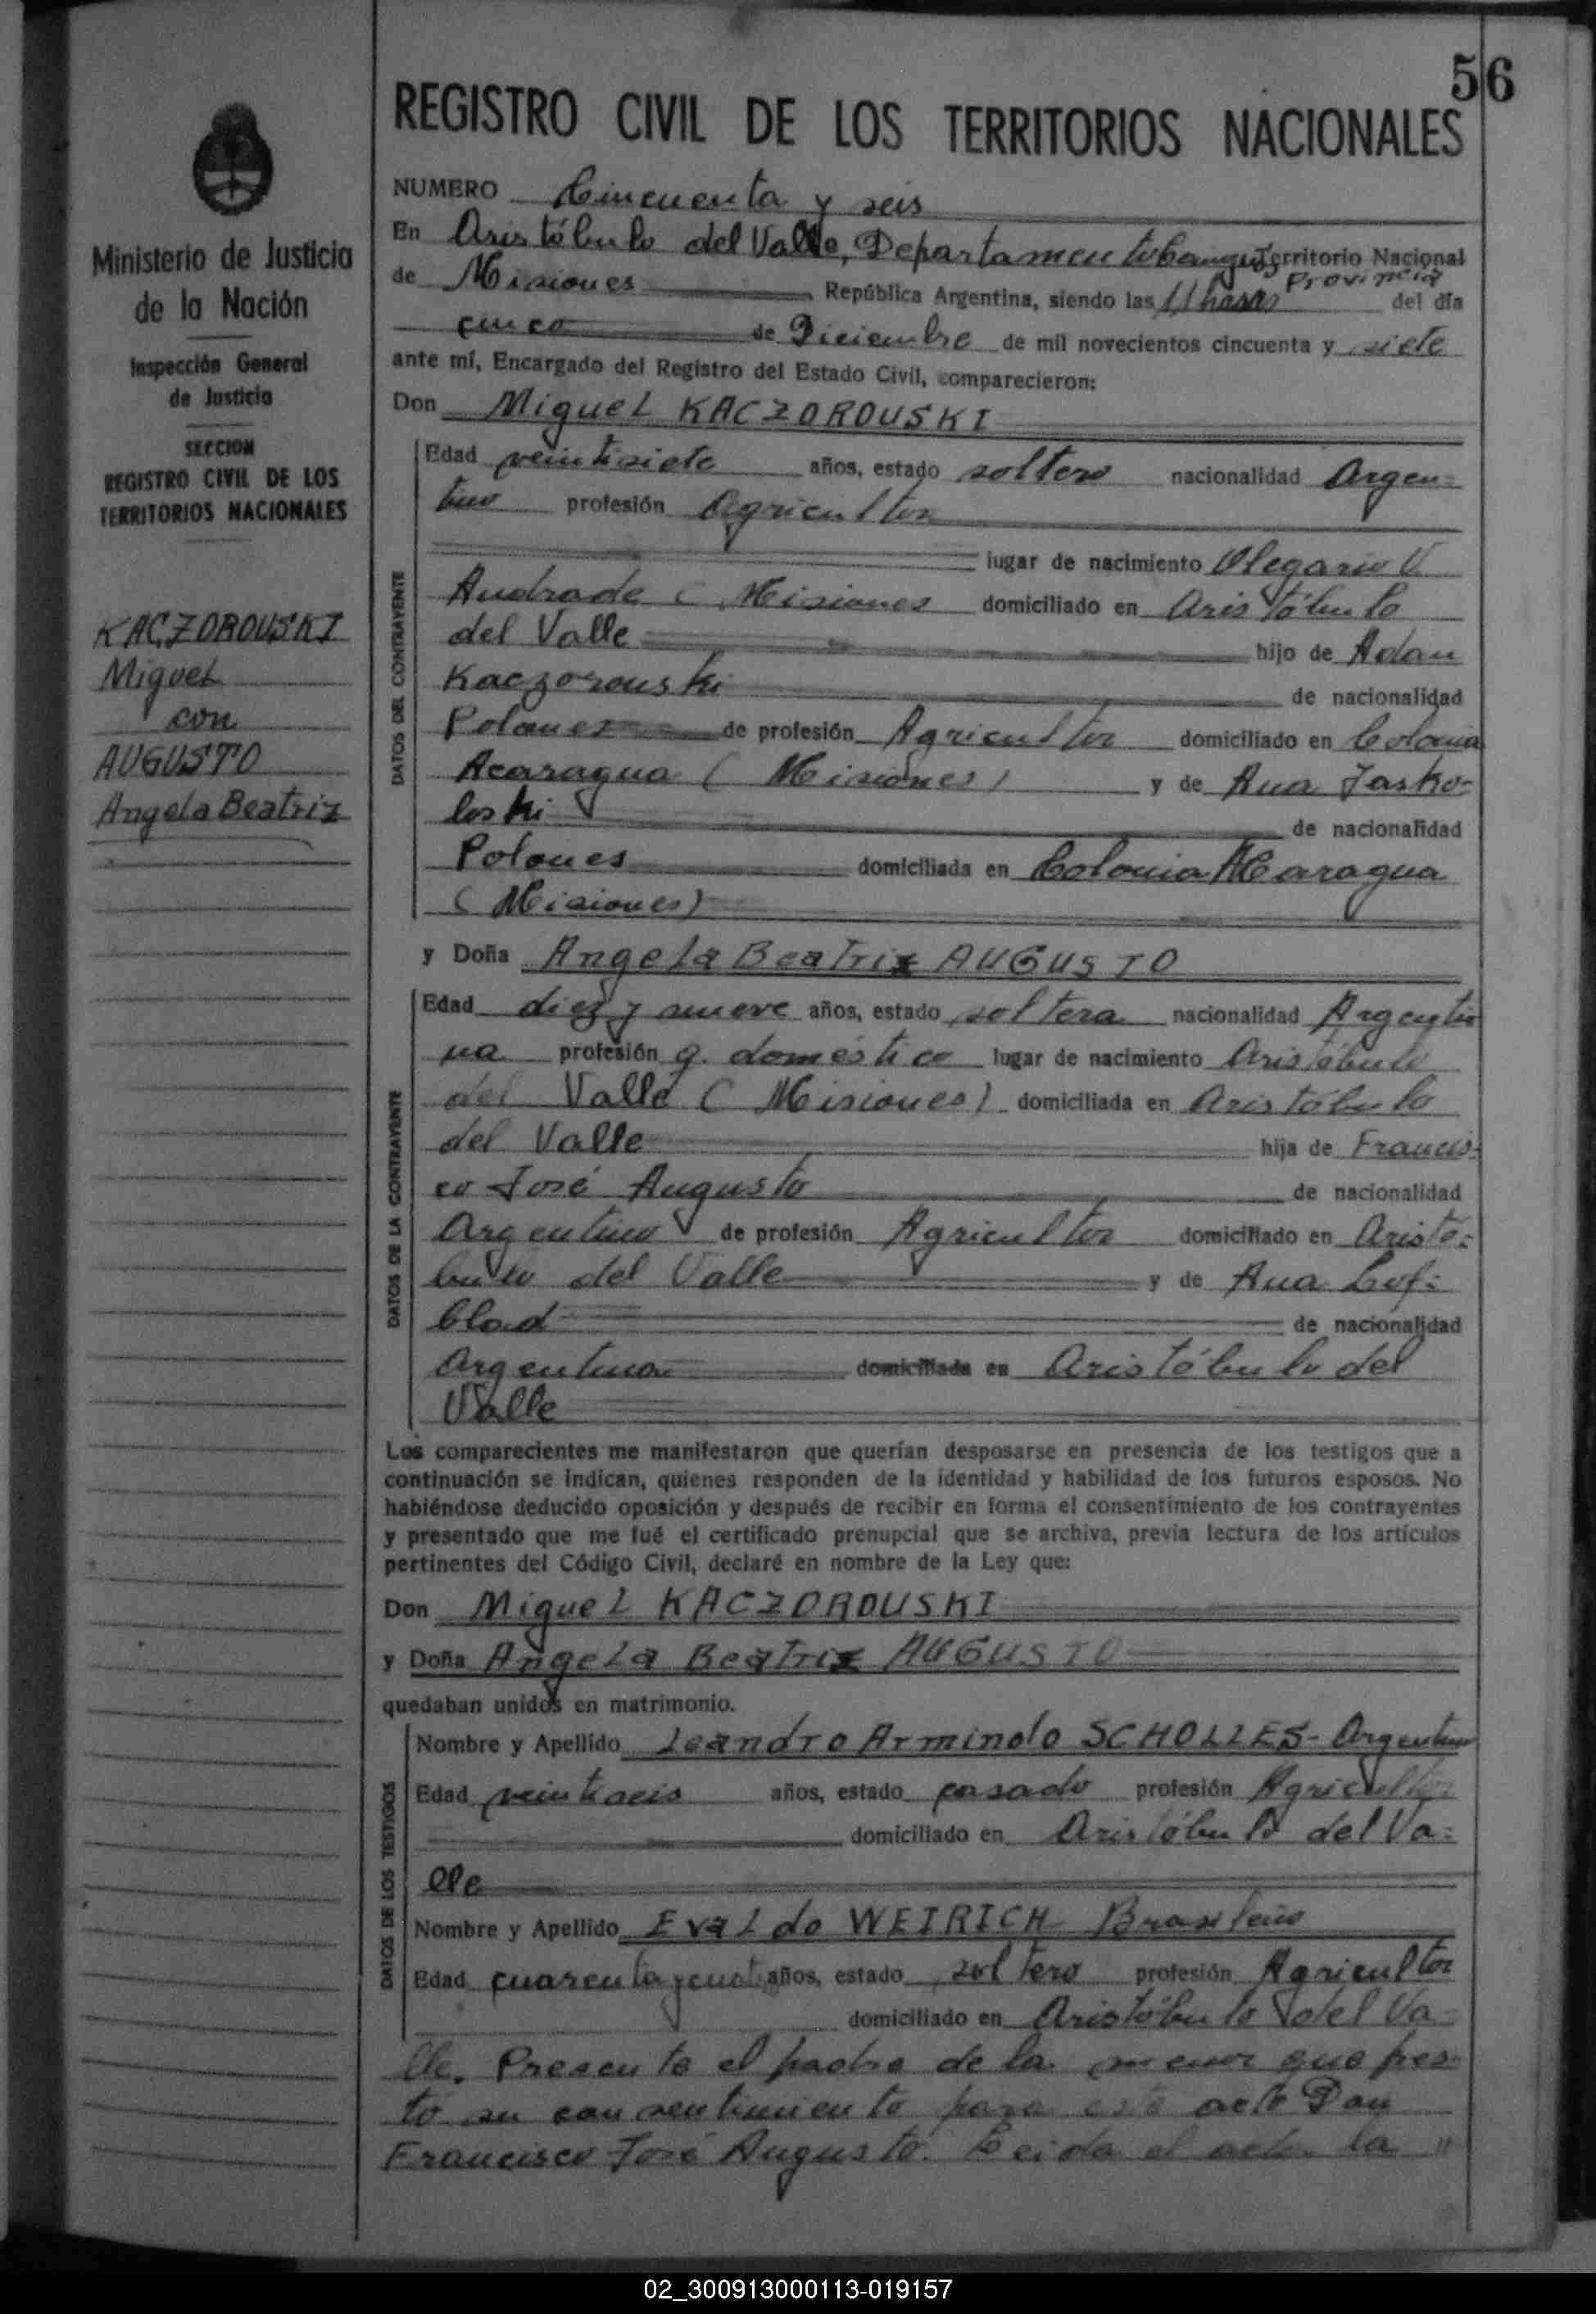 56
REGISTRO CIVIL DE LOS TERRITORIOS NACIONALES
Ministerio de Justicia
de la Nación
Inspección General
de Justicia
SECCION
REGISTRO CIVIL DE LOS
TERRITORIOS NACIONALES
KACZOROUSKI
Miguel
con
AUGUSTO
Angela Beatriz
NUMERO Cincuenta y seis
En Aristóbulo del Valle, Departamento Cainguás Territorio Nacional
Provincia
de Misiones República Argentina, siendo las 11 horas del día
cinco de Diciembre de mil novecientos cincuenta y siete
ante mí, Encargado del Registro del Estado Civil, comparecieron:
Don Miguel KACZOROUSKI
DATOS DEL CONTRAYENTE
Edad veintisiete años, estado soltero nacionalidad Argen=
tino profesión Agricultor
lugar de nacimiento Olegario V.
Andrade ( Misiones domiciliado en Aristóbulo
del Valle hijo de Adan
Kaczorouski de nacionalidad
Polones de profesión Agricultor domiciliado en Colonia
Acaragua ( Misiones ) y de Ana Jasko=
loski de nacionalidad
Polones domiciliada en Colonia Acaragua
( Misiones)
y Doña Angela Beatriz AUGUSTO
DATOS DE LA CONTRAYENTE
Edad diez y nueve años, estado soltera nacionalidad Argenti
na profesión q. doméstico lugar de nacimiento Aristóbulo
del Valle ( Misiones) domiciliada en Aristóbulo
del Valle hija de Francis-
co José Augusto de nacionalidad
Argentino de profesión Agricultor domiciliado en Aristó=
bulo del Valle y de Ana
de nacionalidad
Argentina domiciliada en Aristóbulo del
Valle
Los comparecientes me manifestaron que querían desposarse en presencia de los testigos que a
continuación se indican, quienes responden de la identidad y habilidad de los futuros esposos. No
habiéndose deducido oposición y después de recibir en forma el consentimiento de los contrayentes
y presentado que me fué el certificado prenupcial que se archiva, previa lectura de los artículos
pertinentes del Código Civil, declaré en nombre de la Ley que:
Don Miguel KACZOROUSKI
y Doña Angela Beatriz AUGUSTO
quedaban unidos en matrimonio.
DATOS DE LOS TESTIGOS
Nombre y Apellido Leandro Armindo SCHOLLES- Argentino
Edad veintiseis años, estado casado profesión Agricultor
domiciliado en Aristóbulo del Va=
lle
Nombre y Apellido Evaldo WEIRICH Brasileño
Edad cuarenta y cuat. años, estado soltero profesión Agricultor
domiciliado en Aristóbulo del Va=
lle. Presente el padre de la menor que pres-
to su consentimiento para este acto Don
Francisco José Augusto. Leida el acta la "
02_300913000113-019157